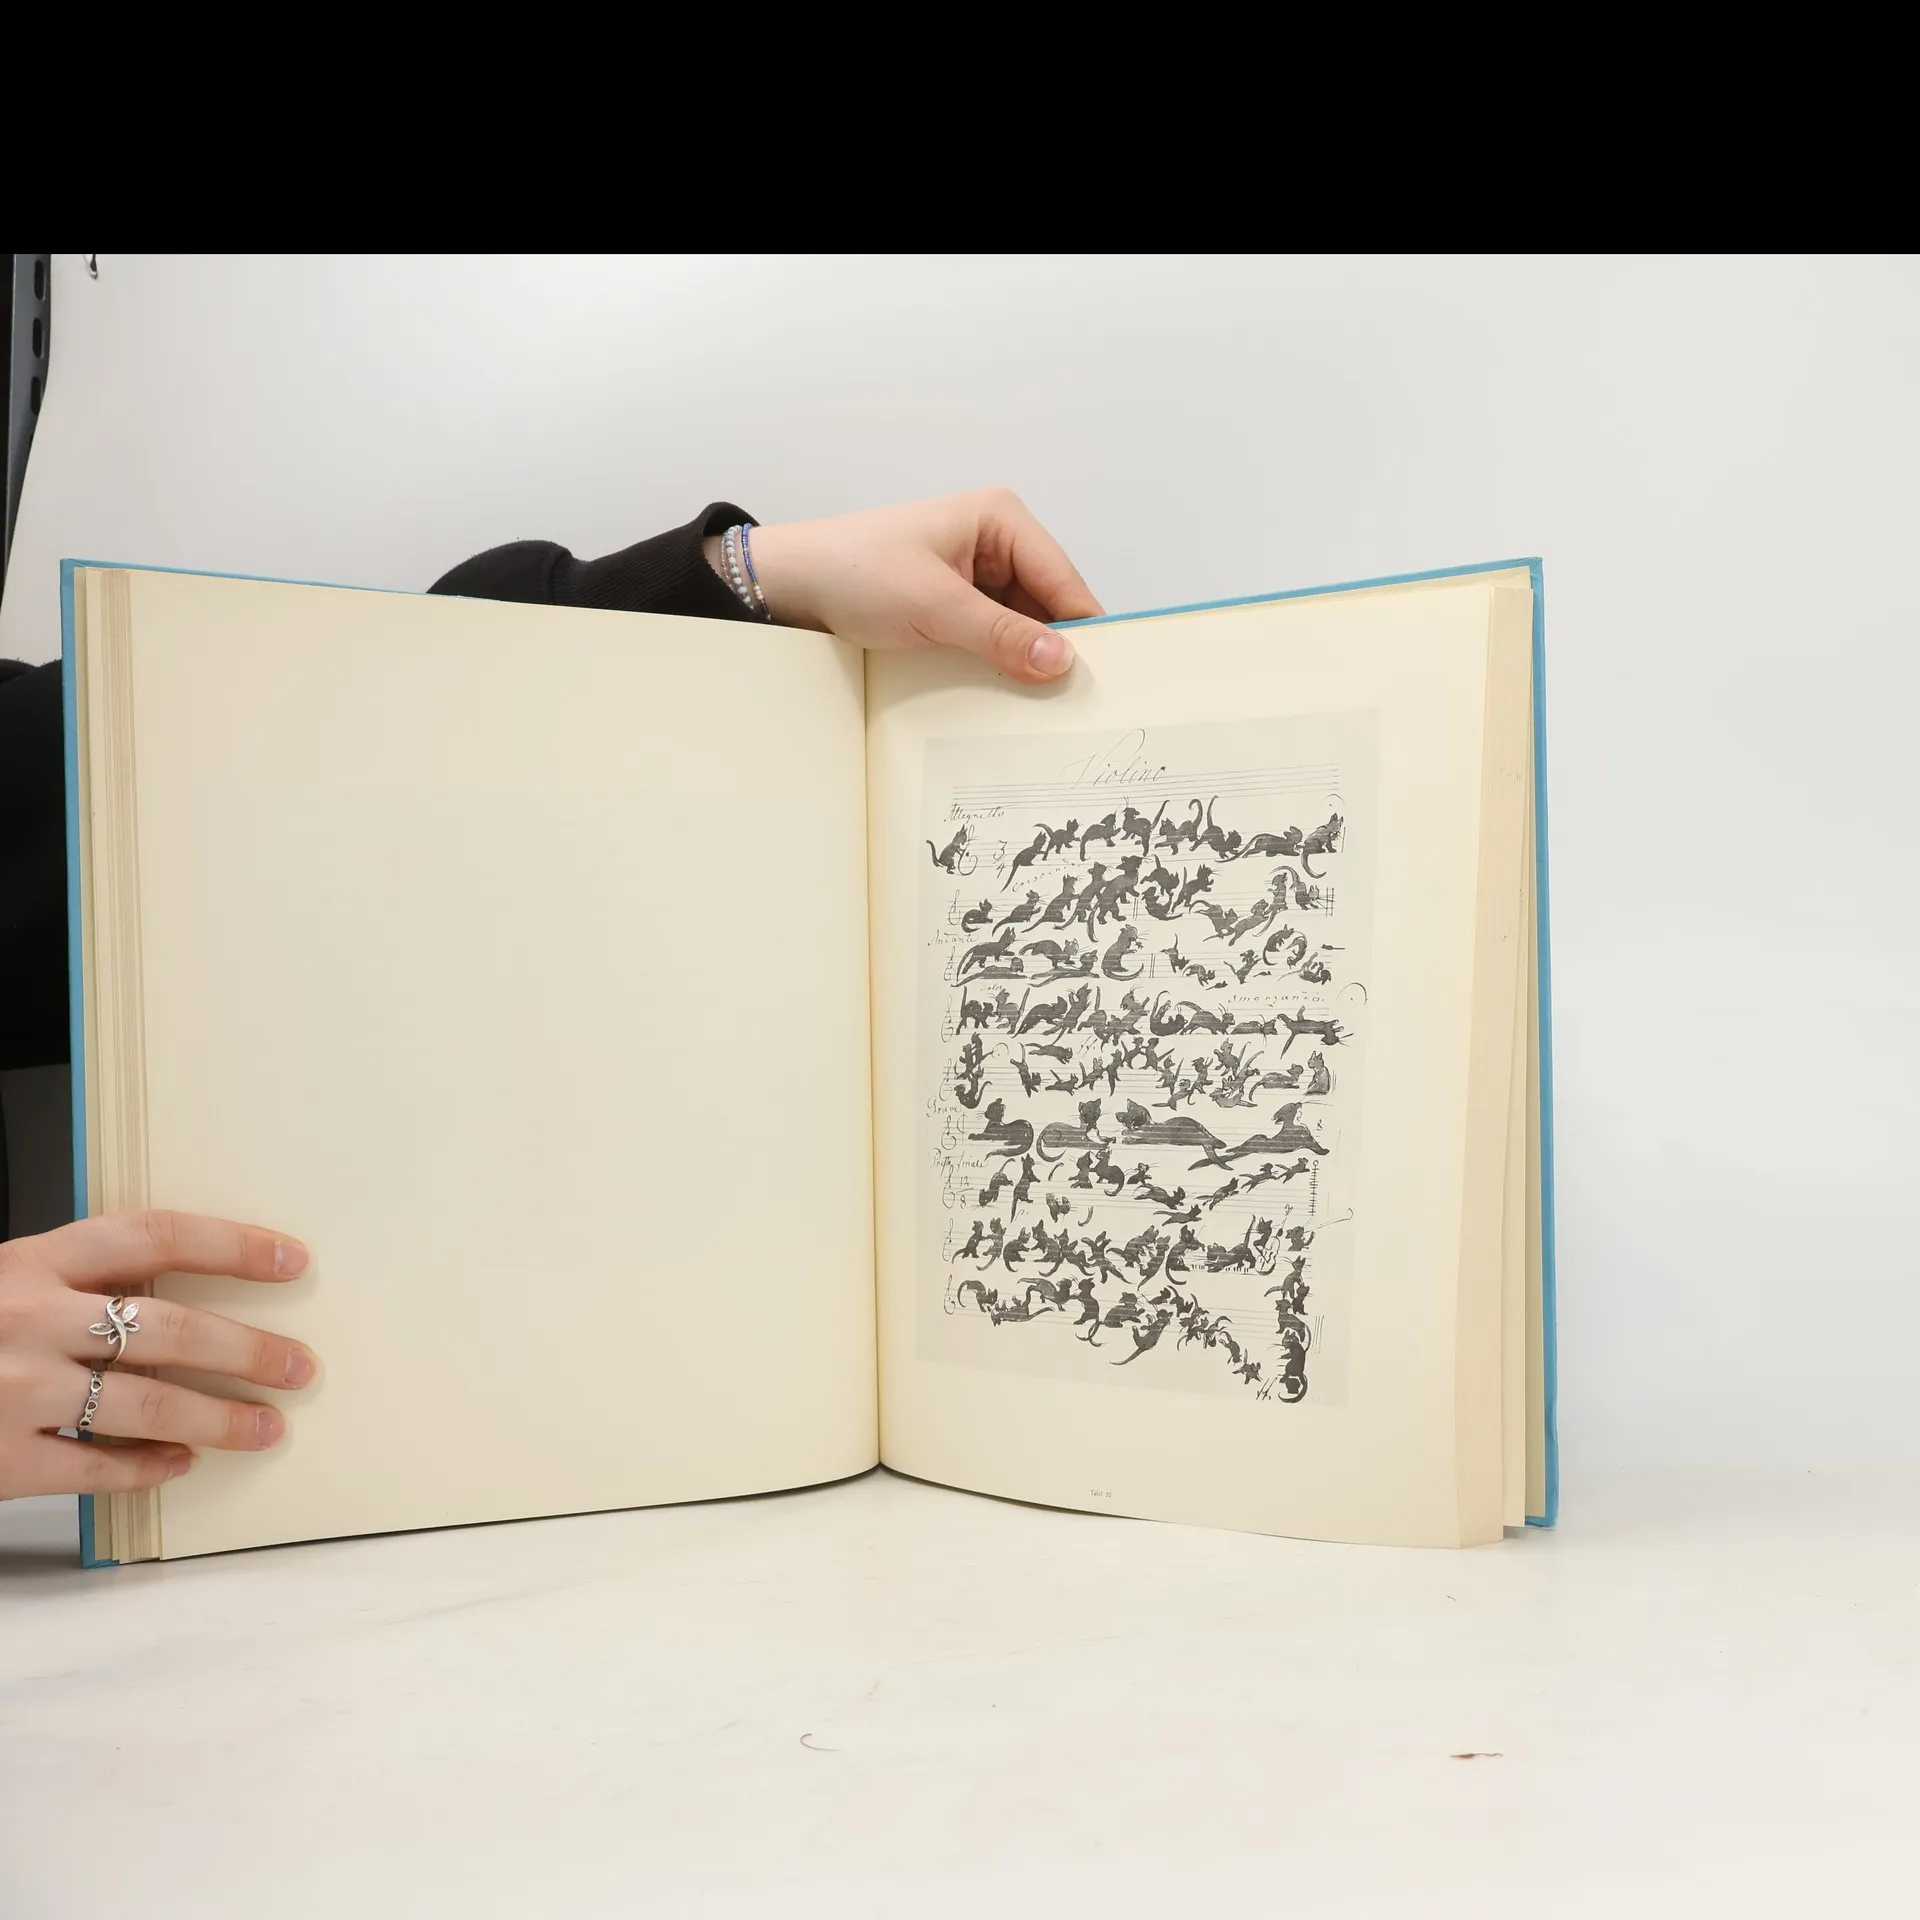 Violino
Allegretto
3
4
crescendo
Andante
dolce
smorzando
ff.
Grave
8
Presto finale
12
8
p.
ff.
Tafel 20